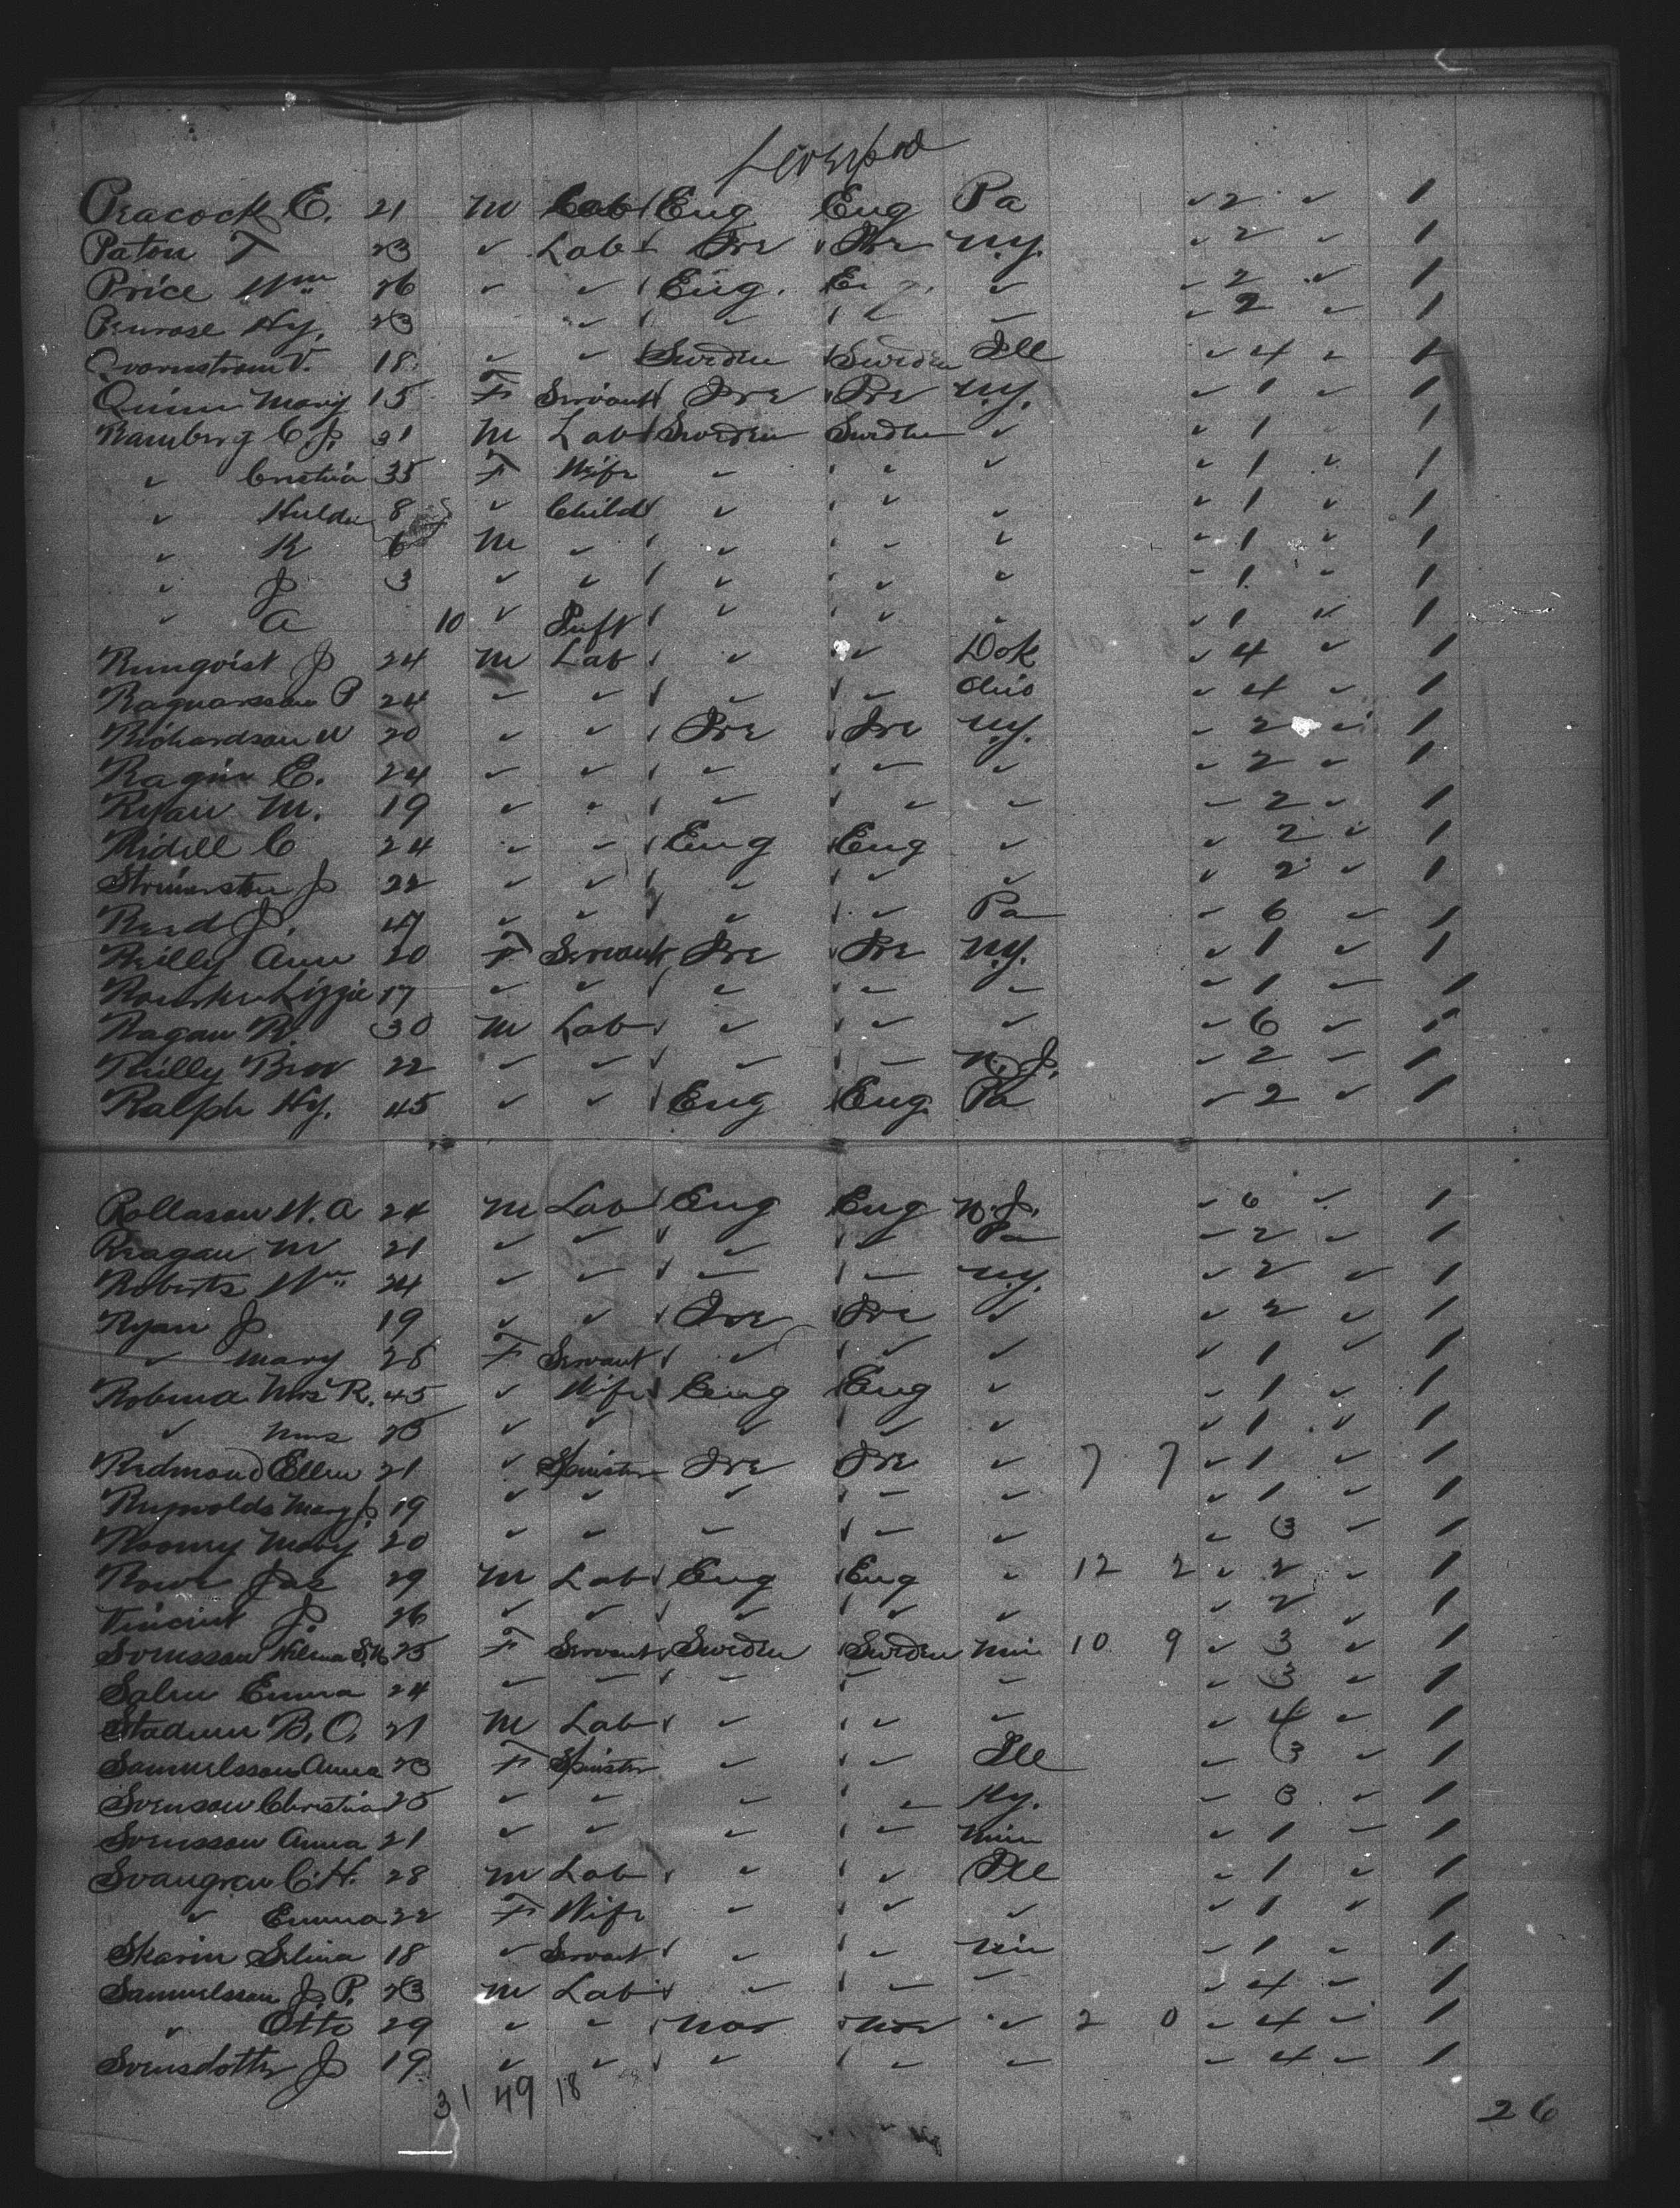 Liverpool
Peacock E. 21 M Lab Eng Eng Pa ✓ 2 ✓ 1
Paton T 23 ✓ Lab Ire Ire N.Y. ✓ 2 ✓ 1
Price Wm 26 ✓ ✓ Eng. Eng. ✓ ✓ 2 ✓ 1
Penrose Hy. 23 ✓ ✓ ✓ ✓ ✓ 2 ✓ 1
Qvarnstrom V. 18 ✓ ✓ Sweden Sweden Ill ✓ 4 ✓ 1
Quinn Mary 15 F Servant Ire Ire N.Y. ✓ 1 ✓ 1
Ramberg C. J. 31 M Lab Sweden Sweden ✓ ✓ 1 1
✓ 35 F Wife ✓ ✓ ✓ ✓ 1 ✓ 1
✓ Hulda 8 ✓ Child ✓ ✓ ✓ ✓ 1 ✓ 1
✓ K 6 M ✓ ✓ ✓ ✓ ✓ 1 ✓ 1
✓ J 3 ✓ ✓ ✓ ✓ ✓ ✓ 1 ✓ 1
✓ A 10 ✓ Inft ✓ ✓ ✓ ✓ 1 ✓ 1
Runqvist J 24 M Lab ✓ ✓ Dok ✓ 4 ✓ 1
Ragnarsson P 24 ✓ ✓ ✓ ✓ Ohio ✓ 4 ✓ 1
Richardson 20 ✓ ✓ Ire Ire N.Y. ✓ 2 ✓ 1
E. 24 ✓ ✓ ✓ ✓ ✓ ✓ 2 ✓ 1
Ryan M. 19 ✓ ✓ ✓ ✓ ✓ ✓ 2 ✓ 1
Ridell C 24 ✓ ✓ Eng Eng ✓ ✓ 2 ✓ 1
J 22 ✓ ✓ ✓ ✓ ✓ ✓ 2 ✓ 1
J. 47 ✓ ✓ ✓ ✓ Pa ✓ 6 ✓ 1
Reilly Ann 20 F Servant Ire Ire N.Y. ✓ 1 ✓ 1
Lizzie 17 ✓ ✓ ✓ ✓ ✓ ✓ 1 ✓ 1
Ragan R. 30 M Lab ✓ ✓ ✓ ✓ 6 ✓ 1
Reilly 22 ✓ ✓ ✓ ✓ N.J. ✓ 2 ✓ 1
Ralph Hy. 45 ✓ ✓ Eng Eng Pa ✓ 2 ✓ 1
Rollason W. A 24 M Lab Eng Eng N.J. ✓ 6 ✓ 1
Reagan M 21 ✓ ✓ ✓ ✓ Pa ✓ 2 ✓ 1
Roberts Wm 24 ✓ ✓ ✓ ✓ N.Y. ✓ 2 ✓ 1
Ryan J 19 ✓ ✓ Ire Ire ✓ ✓ 2 ✓ 1
✓ Mary 25 F Servant ✓ ✓ ✓ ✓ 1 ✓ 1
Mrs R. 45 ✓ Wife Eng Eng ✓ ✓ 1 ✓ 1
✓ 25 ✓ ✓ ✓ ✓ ✓ 1 ✓ 1
Redmond Ellen 21 ✓ Spinster Ire Ire ✓ 7 7 ✓ 1 ✓ 1
Reynolds Mary J. 19 ✓ ✓ ✓ ✓ ✓ ✓ 1 ✓ 1
Rooney Mary 20 ✓ ✓ ✓ ✓ ✓ ✓ 3 ✓ 1
Rowe Jas 29 M Lab Eng Eng ✓ 12 2 ✓ 2 ✓ 1
Vincent J. 26 ✓ ✓ ✓ ✓ ✓ ✓ 2 ✓ 1
Svensson 25 F Servant Sweden Sweden Min 10 9 ✓ 3 ✓ 1
Salen Emma 24 ✓ ✓ ✓ ✓ ✓ ✓ 3 ✓ 1
B. O. 21 M Lab ✓ ✓ ✓ ✓ 4 ✓ 1
Samuelsson Anna 23 F Spinster ✓ ✓ Ill ✓ 3 ✓ 1
Svenson Christina 25 ✓ ✓ ✓ ✓ Ky. ✓ 3 ✓ 1
Svensson Anna 21 ✓ ✓ ✓ ✓ Min ✓ 1 ✓ 1
Svangren C. H. 28 M Lab ✓ ✓ Ill ✓ 1 ✓ 1
✓ Emma 22 F Wife ✓ ✓ ✓ ✓ 1 ✓ 1
Skarin Selina 18 ✓ Servant ✓ ✓ Min ✓ 1 ✓ 1
Samuelsson J. P. 23 M Lab ✓ ✓ ✓ ✓ 4 ✓ 1
✓ Otto 29 ✓ ✓ Nor Nor ✓ 2 0 ✓ 4 ✓ 1
Svensdotter J 19 ✓ ✓ ✓ ✓ ✓ ✓ 4 ✓ 1
31 49 18
26